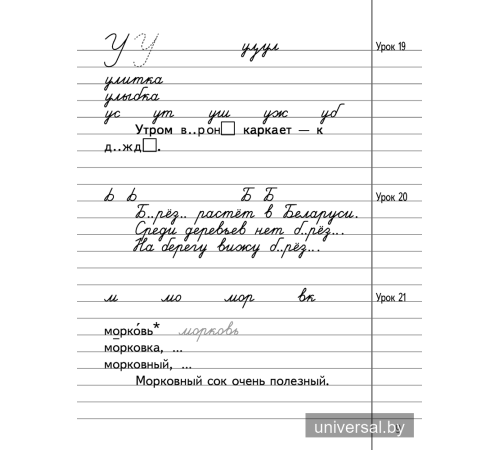 У У узул Урок 19
улитка
улыбка
ус ут уш уж уб
Утром в..рон□ каркает — к
д..жд□.
Ь Ь Б Б Урок 20
Б..рёз.. растёт в Беларуси.
Среди деревьев нет б..рёз...
На берегу вижу б..рёз...
м мо мор вк Урок 21
морко́вь* морковь
морковка, ...
морковный, ...
Морковный сок очень полезный.
universal.by